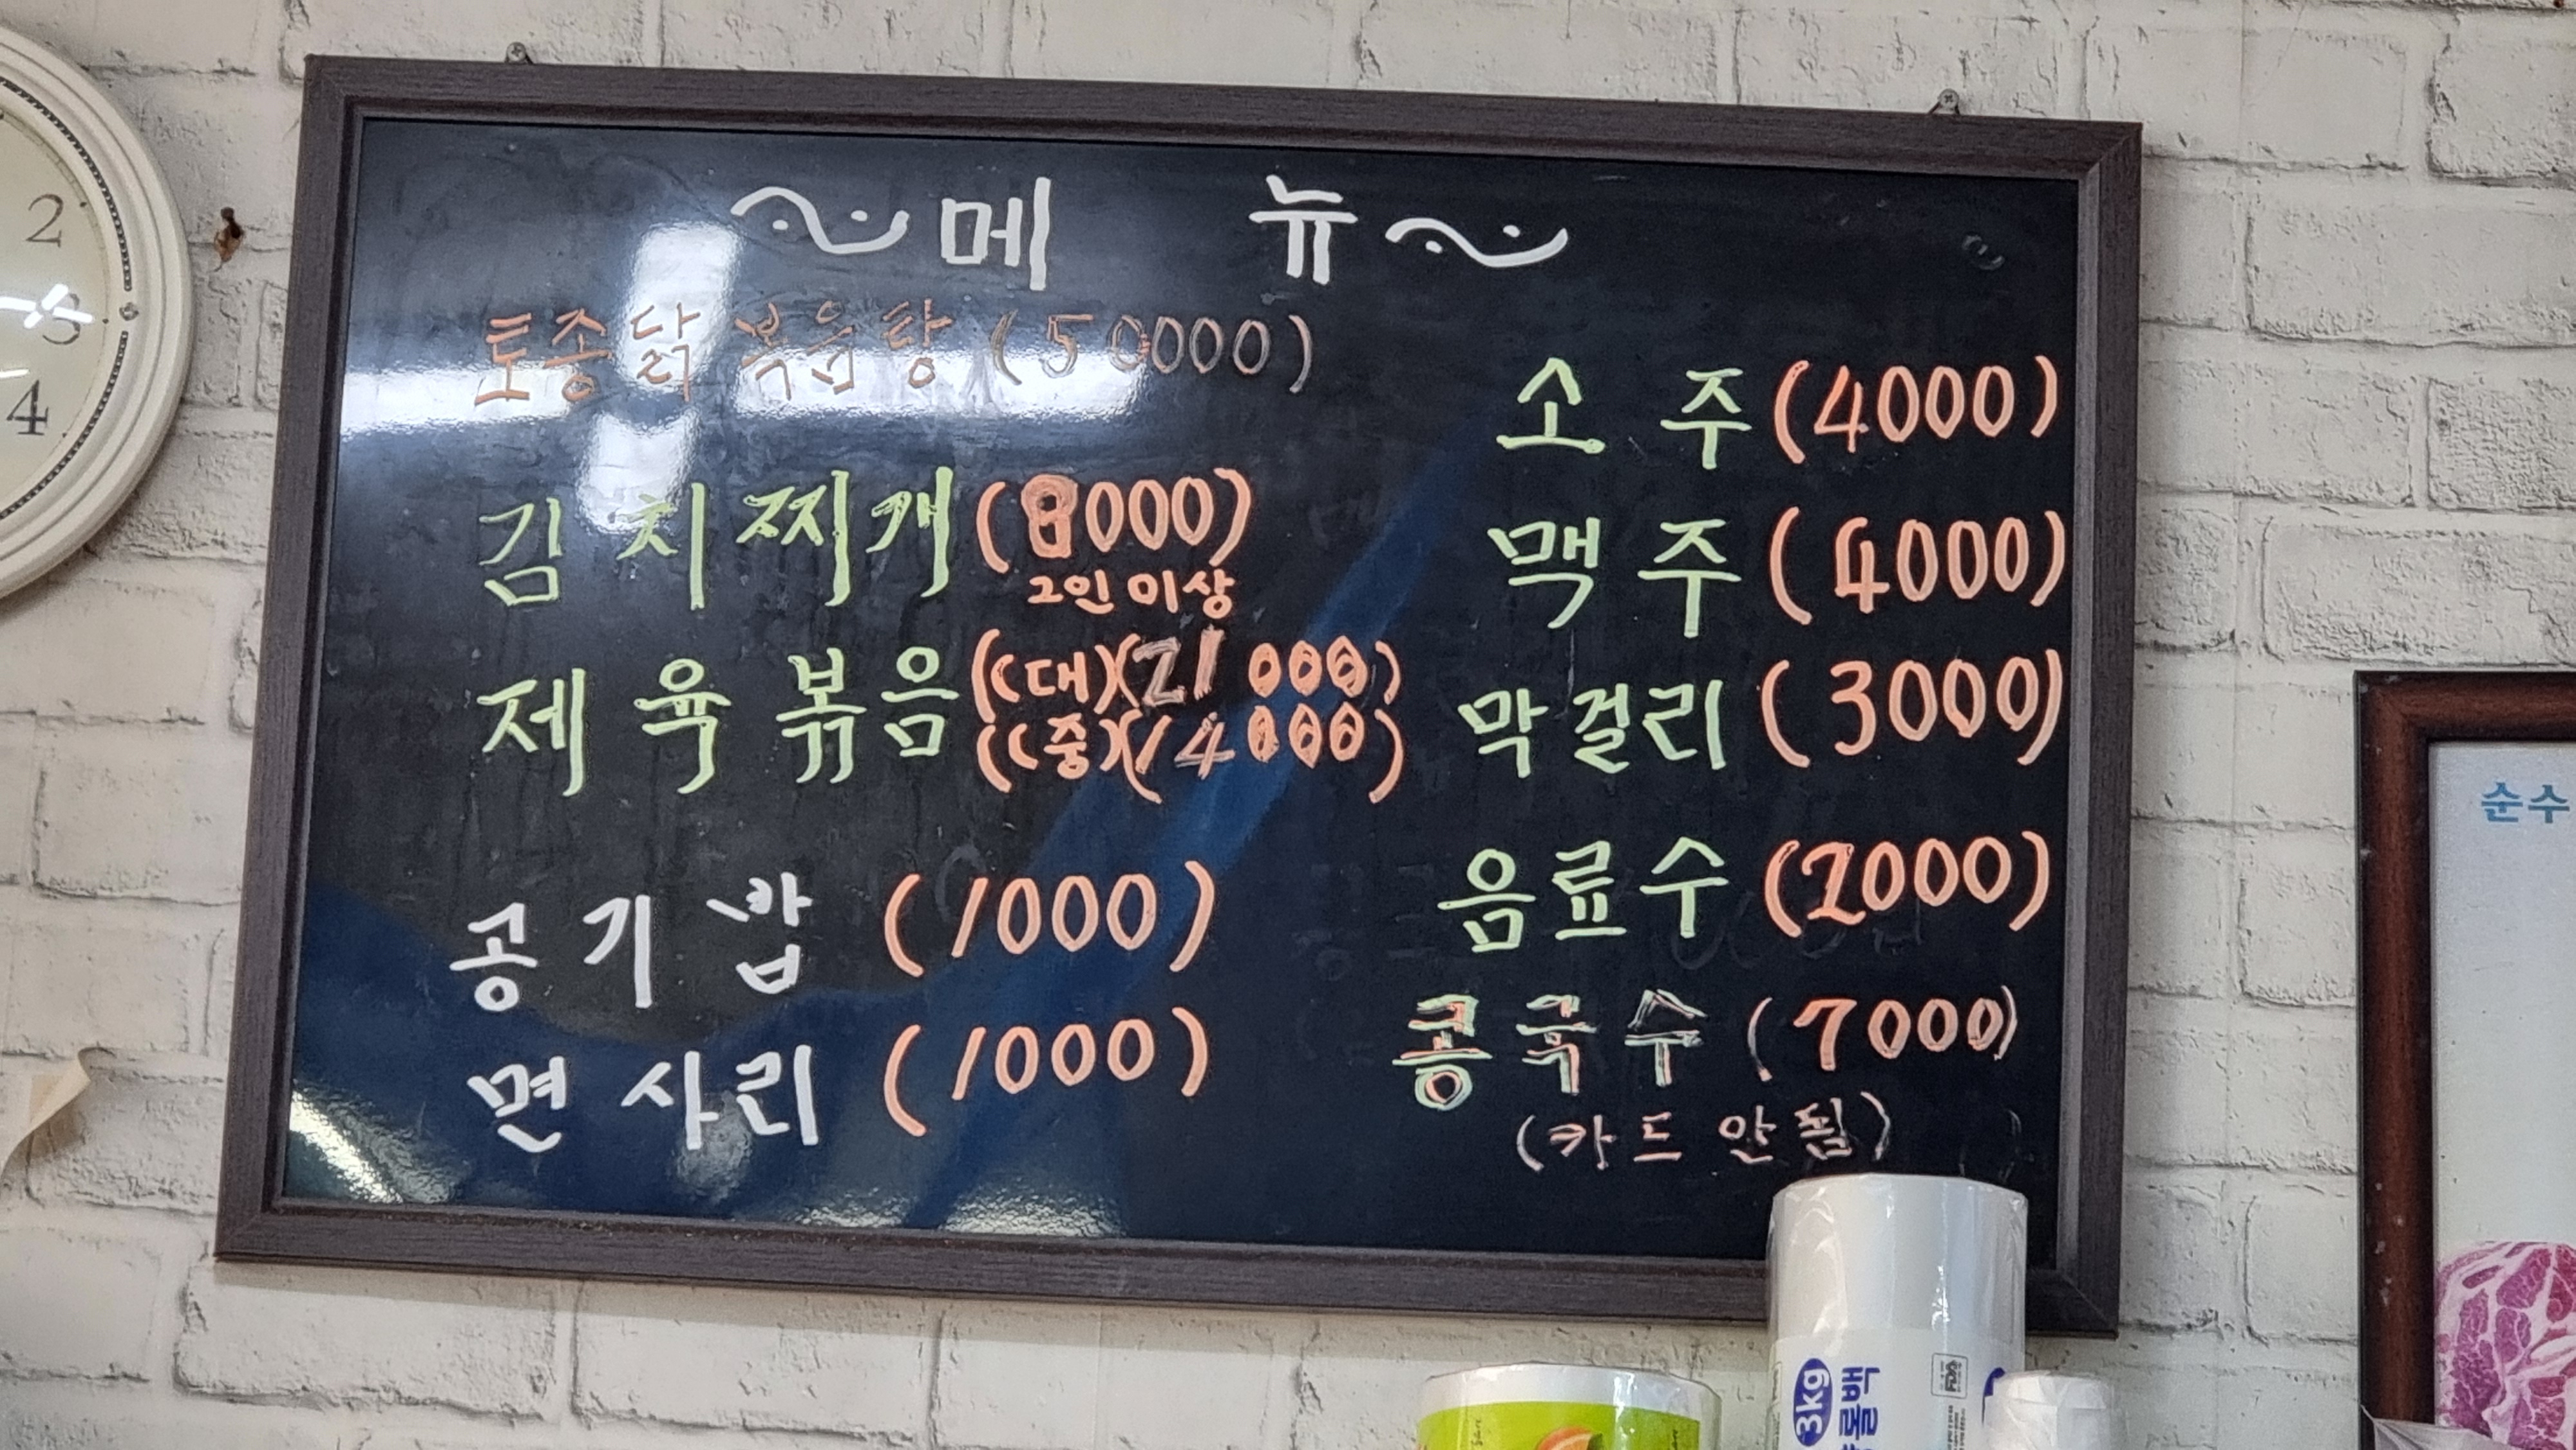 메 뉴
토종닭 볶음탕 (50000)
김치찌개 (8000)
2인 이상
제육볶음 ((대)(21000)
((중)(14000)
공기밥 (1000)
면사리 (1000)
소주 (4000)
맥주 (4000)
막걸리 (3000)
음료수 (2000)
콩국수 (7000)
(카드 안됨)
2
3
4
순수
3kg
롤백